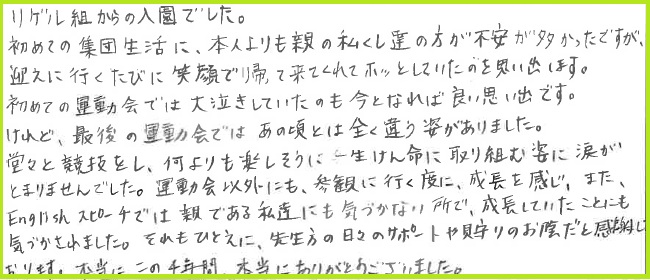 リゲル組からの入園でした。
初めての集団生活に、本人よりも親の私くし達の方が不安が多かったですが、
迎えに行くたびに笑顔で帰って来てくれてホッとしていたのを思い出します。
初めての運動会では大泣きしていたのも今となれば良い思い出です。
けれど、最後の運動会ではあの頃とは全く違う姿がありました。
堂々と競技をし、何よりも楽しそうに一生けん命に取り組む姿に涙が
とまりませんでした。運動会以外にも、参観に行く度に、成長を感じ、また、
English スピーチでは親である私達にも気づかない所で、成長していたことにも
気づかされました。それもひとえに、先生方の日々のサポートや見守りのお陰だと感謝して
おります。本当にこの4年間、本当にありがとうございました。